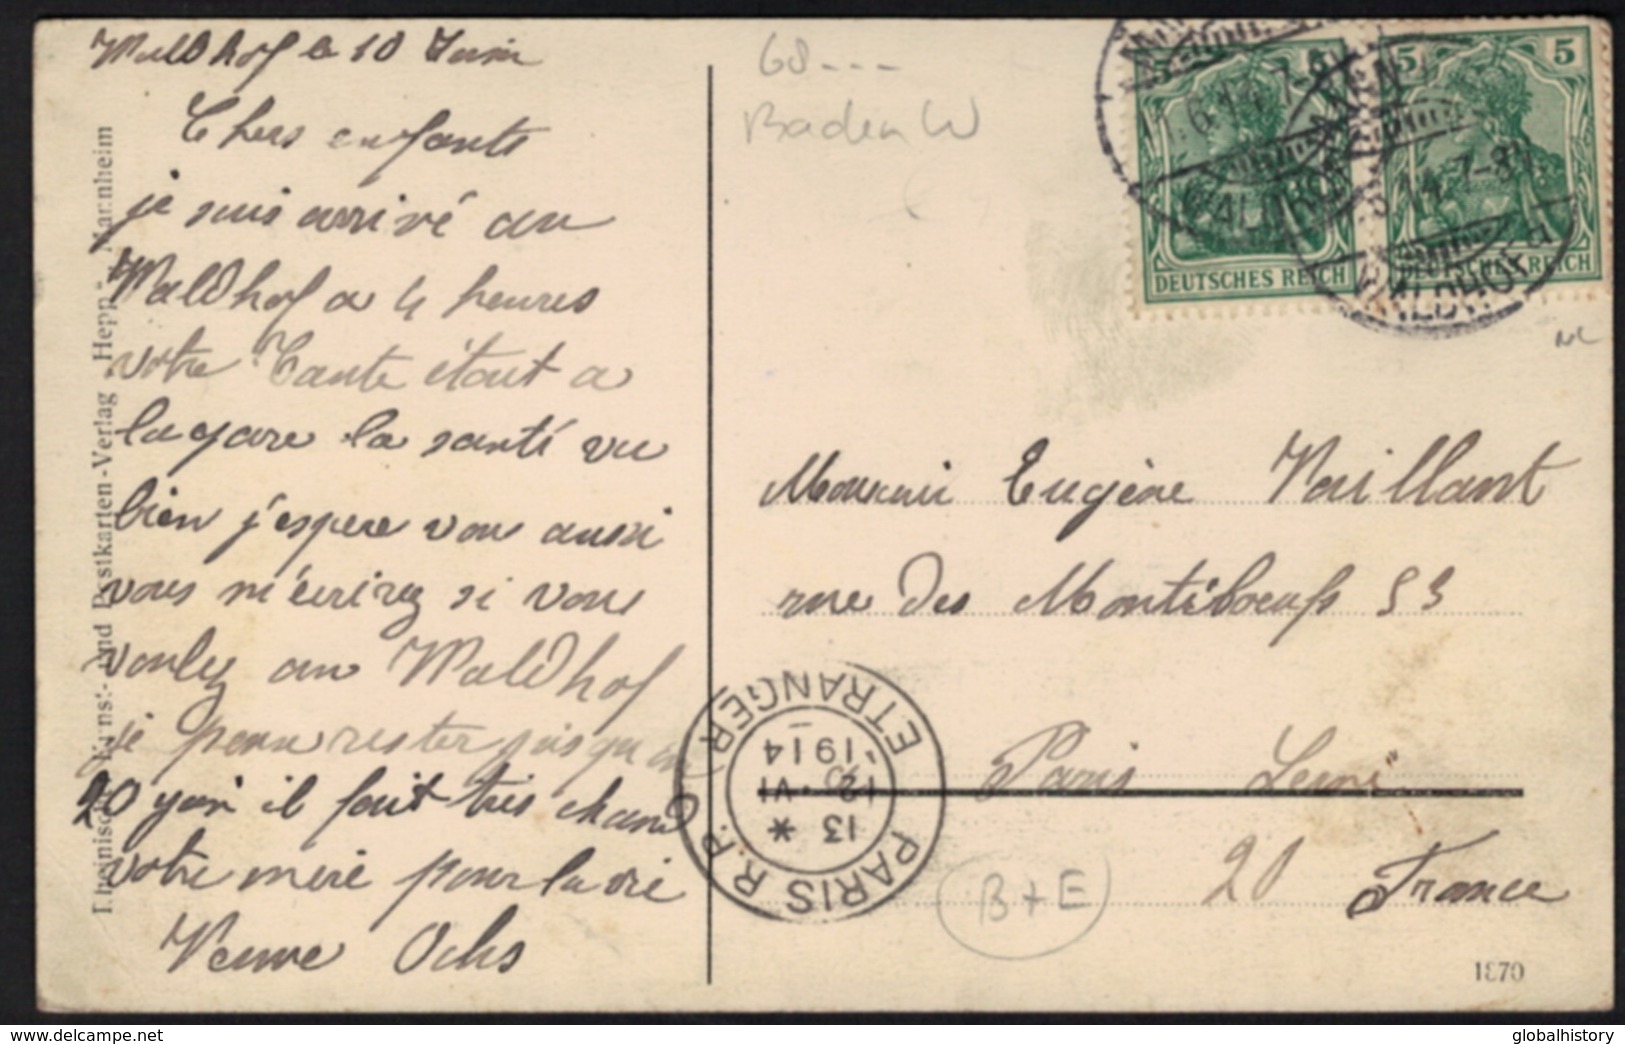 Waldhof le 10 Juin
Chers enfants
je suis arrivé au
Waldhof a 4 heures
votre Tante étant a
la gare la santé va
bien j'espere vous aussi
vous m'écrirez si vous
voulez au Waldhof
je peux rester jusqu'au
20 Juin il fait tres chaud
votre mère pour la vie
Veuve Ochs
Rheinische Kunst- und Postkarten-Verlag Hepp - Mannheim
68---
Baden W
5 5
DEUTSCHES REICH
DEUTSCHES REICH
WALDHOF
WALDHOF
14.7-8
Monsieur Eugène Vaillant
rue des Montiboeufs 53
Paris
20 France
PARIS R.P. ETRANGER
13 *
12 VI
1914
B+E
1870
delcampe.net
globalhistory